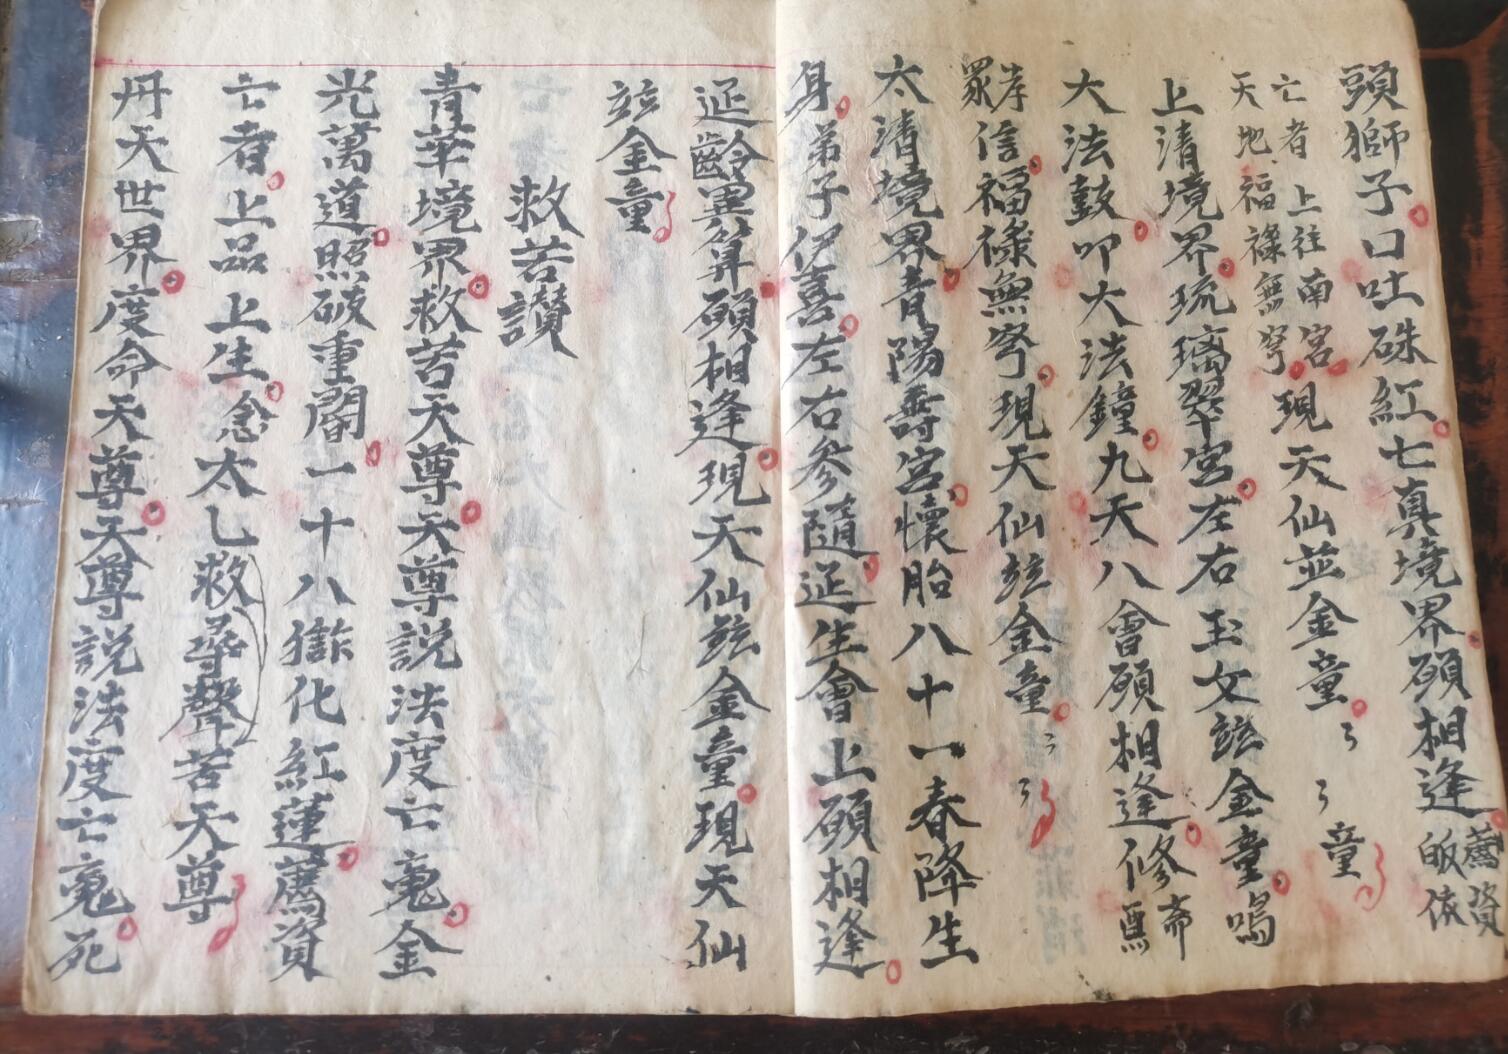 頭獅子口吐硃紅七真境界願相逢薦資皈依
亡者上往南宮
天地福祿無窮現天仙並金童ママ童
上清境界琉璃翠宮左右玉女玆金童鳴
大法鼓叩大法鐘九天八會願相逢修齋
孝眾信福祿無窮現天仙玆金童ママ
太清境界青陽壽宮懷胎八十一春降生
身弟子伊喜左右參隨延生會上願相逢
延齡異算願相逢現天仙玆金童現天仙
玆金童
救苦讚
青華境界救苦天尊天尊説法度亡䰟金
光萬道照破重闇一十八獄化紅蓮薦資
亡者上品上生念太乚救尋聲苦天尊
丹天世界度命天尊天尊説法度亡䰟死